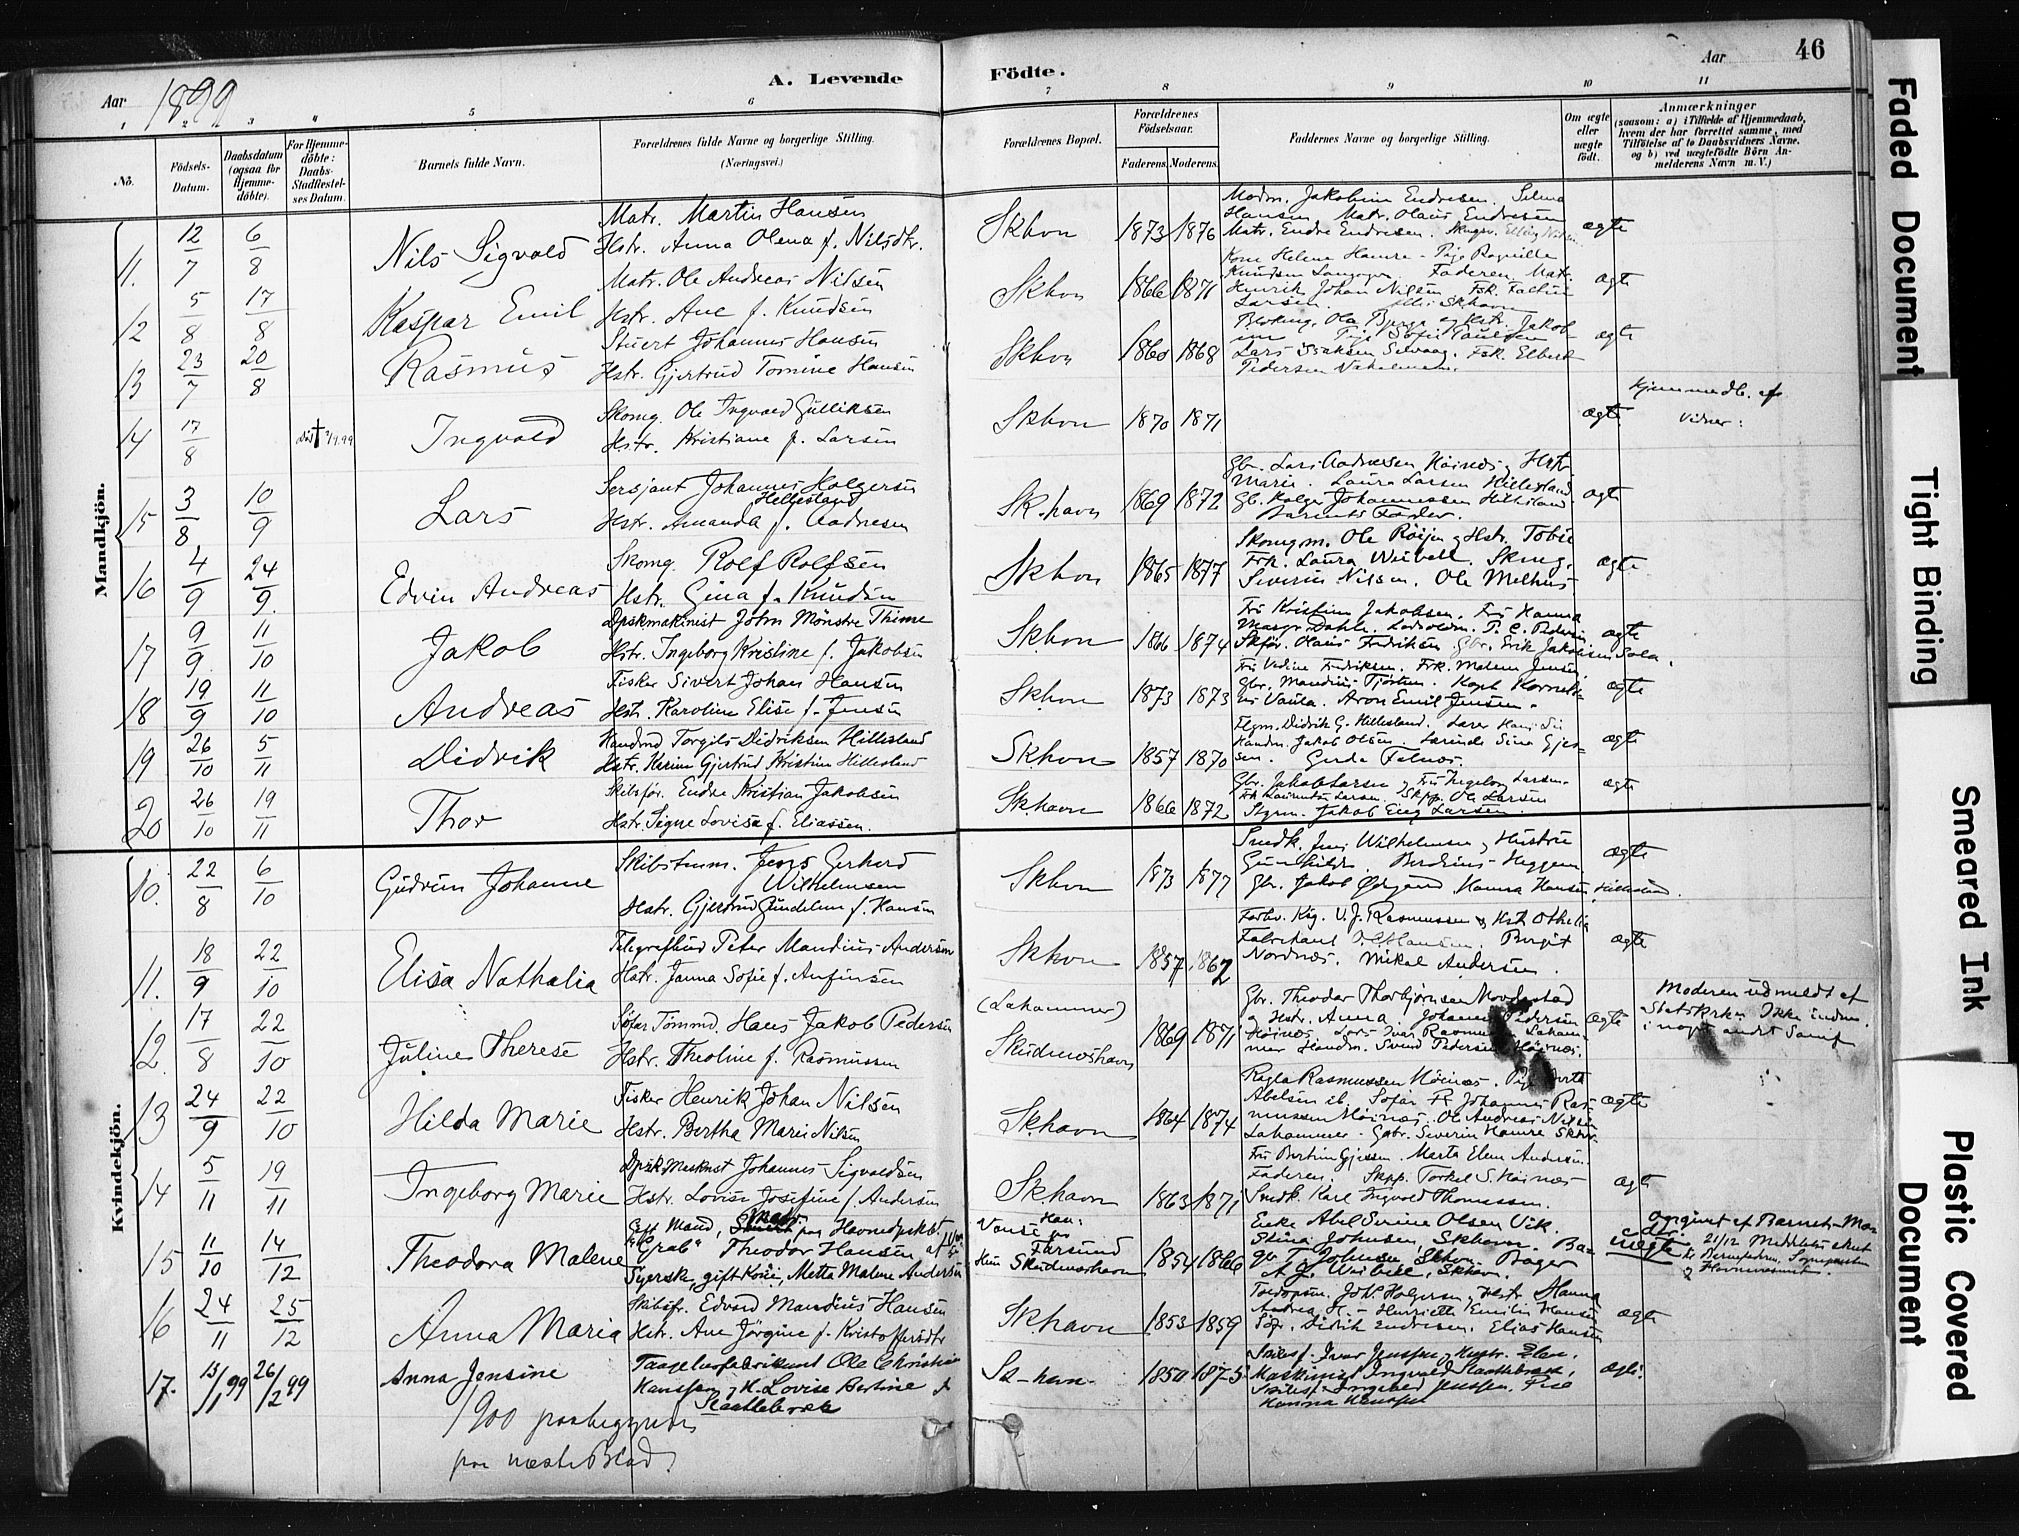 Aar 1899
A. Levende
Födte.
Aar
46
1 2 3 4 5 6 7 8 9 10 11
No.
Födsels-Datum.
Daabsdatum (ogsaa for Hjemme-döbte).
For Hjemme-döbte: Daabs-Stadfæstel-ses Datum.
Barnets fulde Navn.
Forældrenes fulde Navne og borgerlige Stilling. (Næringsvei.)
Forældrenes Bopæl.
Forældrenes Födselsaar.
Faderens. Moderens.
Faddernes Navne og borgerlige Stilling.
Om ægte eller uægte födt.
Anmærkninger
(saasom: a) i Tilfælde af Hjemmedaab, hvem der har forrettet samme, med Tilföielse af to Daabsvidners Navne, og b) ved uægtefödte Börn An-melderens Navn m. V.)
Mandkjön.
11. 12/7 6/8 Nils Sigvald
Matr. Martin Hansen
Hstr. Anna Olena f. Nilsdtr.
Skhvn 1873 1876
Madm. Jakobine Endresen. Selma
Hansen Matr. Olaus Endresen
Matr. Endre Endresen.
ægte
12 5/8 17/8 Kaspar Emil
Matr. Ole Andreas Nilsen
Hstr. Ane f. Knudsen
Skhvn 1866 1871
Kone Helene Hamre - Pige Ragnille
Knudsen Faderen. Matr.
Henrik Johan Nilsen Fsk.
Larsen. Skhavn
ægte
13 23/7 20/8 Rasmus
Stuert Johannes Hansen
Hstr. Gjertrud Tomine Hansen
Skhvn 1860 1868
Ola og Hstr. Jakob-
ine Pige Sofie Paulsen
Lars Isaksen Fsk. Elbert
Pedersen
ægte
14 17/8 död † 2/9.99 Ingvald
Skomg. Ole Ingvald Gulliksen
Hstr. Kristiane f. Larsen
Skhvn 1870 1871
ægte
Hjemmedb. af
vidner:
15 3/8 10/9 Lars
Sersjant Johannes Holgersen
Hillesland
Hstr. Amanda f. Aadnesen
Sk.havn 1869 1872
Gbr. Lars Aadnesen Höines, Hstr
Marie. Laura Larsen Hillesland
Gb. Holger Johannessen Hillesland
ægte
16 4/9 24/9. Edvin Andreas
Skomg. Rolf Rolfsen
Hstr. Gina f. Knudsen
Skhvn 1865 1877
Skomgm. Ole Hstr. Tobie
Frk. Laura Skmg.
Severin Nilsen. Ole Melhus
ægte
17 9/9 11/10 Jakob
Dpskmakinist John Mönstre Thime
Hstr. Ingeborg Kristine f. Jakobsen
Skhvn 1866 1874
Fru Kristine Jakobsen, Fru Hanna
Margr. Dahle. P. C. Pedersen
Skför. Olaus Fredriksen Gbr. Erik Jakobsen Sola.
ægte
18 19/9 11/10 Andreas
Fisker Sivert Johan Hansen
Hstr. Karoline Elise f. Jensen
Skhvn 1873 1873
Fru Fredriksen. Frk. Malene Jensen
Gbr. Mandius Tjösten. Kapt Korneli-
us Vaula. Aron Emil Jensen.
ægte
19 26/10 5/11 Didrik
Handsmd Torgils Didriksen Hillesland
Hstr. Karine Gjertrud Kristine Hillesland
Skhvn 1857 1870
Didrik G. Hillesland.
Handm. Jakob Olsen. Lærinde Sina Gjes-
sen. Gerda Falnes.
ægte
20 26/10 19/11 Thor
Skibsför. Endre Kristian Jakobsen
Hstr. Signe Lovise f. Eliassen.
Skhavn 1866 1872
Gbr. Jakob Larsen, Fru Ingebor Larsen.
Skpp. Ole Larsen
Styrm. Jakob Larsen.
ægte
Kvindekjön.
10. 22/8 6/10 Gudrun Johanne
Skibstmm. Jens Gerhard
Wilhelmsen
Hstr. Gjertrud Gundelene f. Hansen
Skhvn 1873 1877
Snedk. Jens Wilhelmsen, Hustru
Gunhild.
Gbr. Jakob Hanna Hansen, Hillesland.
ægte
11. 18/9 22/10 Elisa Nathalia
Telegrafbud Peter Mandius Andersen
Hstr. Janna Sofie f. Anfinsen
Skhvn 1857 1862
Forhv. Kbg. V. J. Rasmussen & Hst Othelia
Fabrikant Hansen. Bergit
Nordnes. Mikal Andersen.
ægte
12. 17/8 22/10 Juline Therese
Söfar Tömmd. Hans Jakob Pedersen
Hstr. Theoline f. Rasmussen
(Lahammer)
Skudneshavn 1869 1871
Gbr. Theodor Thorbjörnsen
og Hstr. Anna. Johannes Pedersen
Höines, Lars Ivar Rasmus Laham-
mer Handm. Svend Pedersen Höines.
ægte
Moderen udmeldt af
Statskirken. Ikke indm.
i noget andet Samf
13 24/9 22/10 Hilda Marie
Fisker Henrik Johan Nilsen
Hstr. Bertha Marie Nilsen
Sk.havn 1864 1874
Ragla Rasmussen Höines. Pige Berta
Abelsen ib. Söfar Johannes Ras-
mussen Höines. Ole Andreas Nilsen
Lahammer - Gbr. Severin Hamre Skhvn.
ægte
14 5/11 19/11 Ingeborg Marie
Dpsk Maskinst Johannes Sigvaldsen
Hstr. Lovise Josefine f. Andersen
Sk.havn 1863 1871
Fru Bertine Gjessen. Marta Elene Andersen.
Faderen. Skpp. Torkel S. Höines
Snedk. Karl Ingvald Thomassen.
ægte
15 11/10 14/12 Theodora Malene
Gift Mand, Matr. paa Havnedpskbt
"Grab" Theodor Hansen af
Syerske, gift Kone, Metta Malene Andersen
Han: Vanse
Farsund
Hun Skudneshavn 1854 1866
Enke Abel Serine Olsen Vik.
Stina Johnsen Skhavn. Ba-
ger T. Johnsen Skhvn. Prager
A. J. Weibell, Skhavn.
uægte
Opgivet af Barnets Mor
21/12 Meddelelse sendt
16 24/11 25/12 Anna Maria
Skibsfr. Edvard Mandius Hansen
Hstr. Ane Jörgine f. Kristoffersdtr
Skhavn 1853 1859
Joh. Holgersen, Hstr. Hanna
Andrea H. - Henriette Emilie Hansen
Söfr. Didrik Endresen. Elias Hansen
ægte
17. 13/1 99 26/2 99 Anna Jensine
Taagelurfabrikant Ole Christian
Hanssen, H. Lovise Bertine f.
Skattebrækk
Sk-havn 1850 1875
Skibsf. Ivar Jenssen, Hustr. Elen,
Maskinist Ingvald Skattebræk,
Skibsf. Ingvald Jenssen. Frk
Hanna Hanssen
ægte:
1900 paabegyndes
paa næste Blad.
Faded Document
Tight Binding
Smeared Ink
Plastic Covered Document